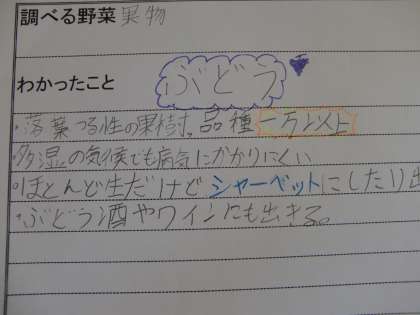 調べる野菜果物
ぶどう
わかったこと
・落葉つる性の果樹。品種一万以上
・多湿の気候でも病気にかかりにくい
・ほとんど生だけどシャーベットにしたり出
・ぶどう酒やワインにも出きる。